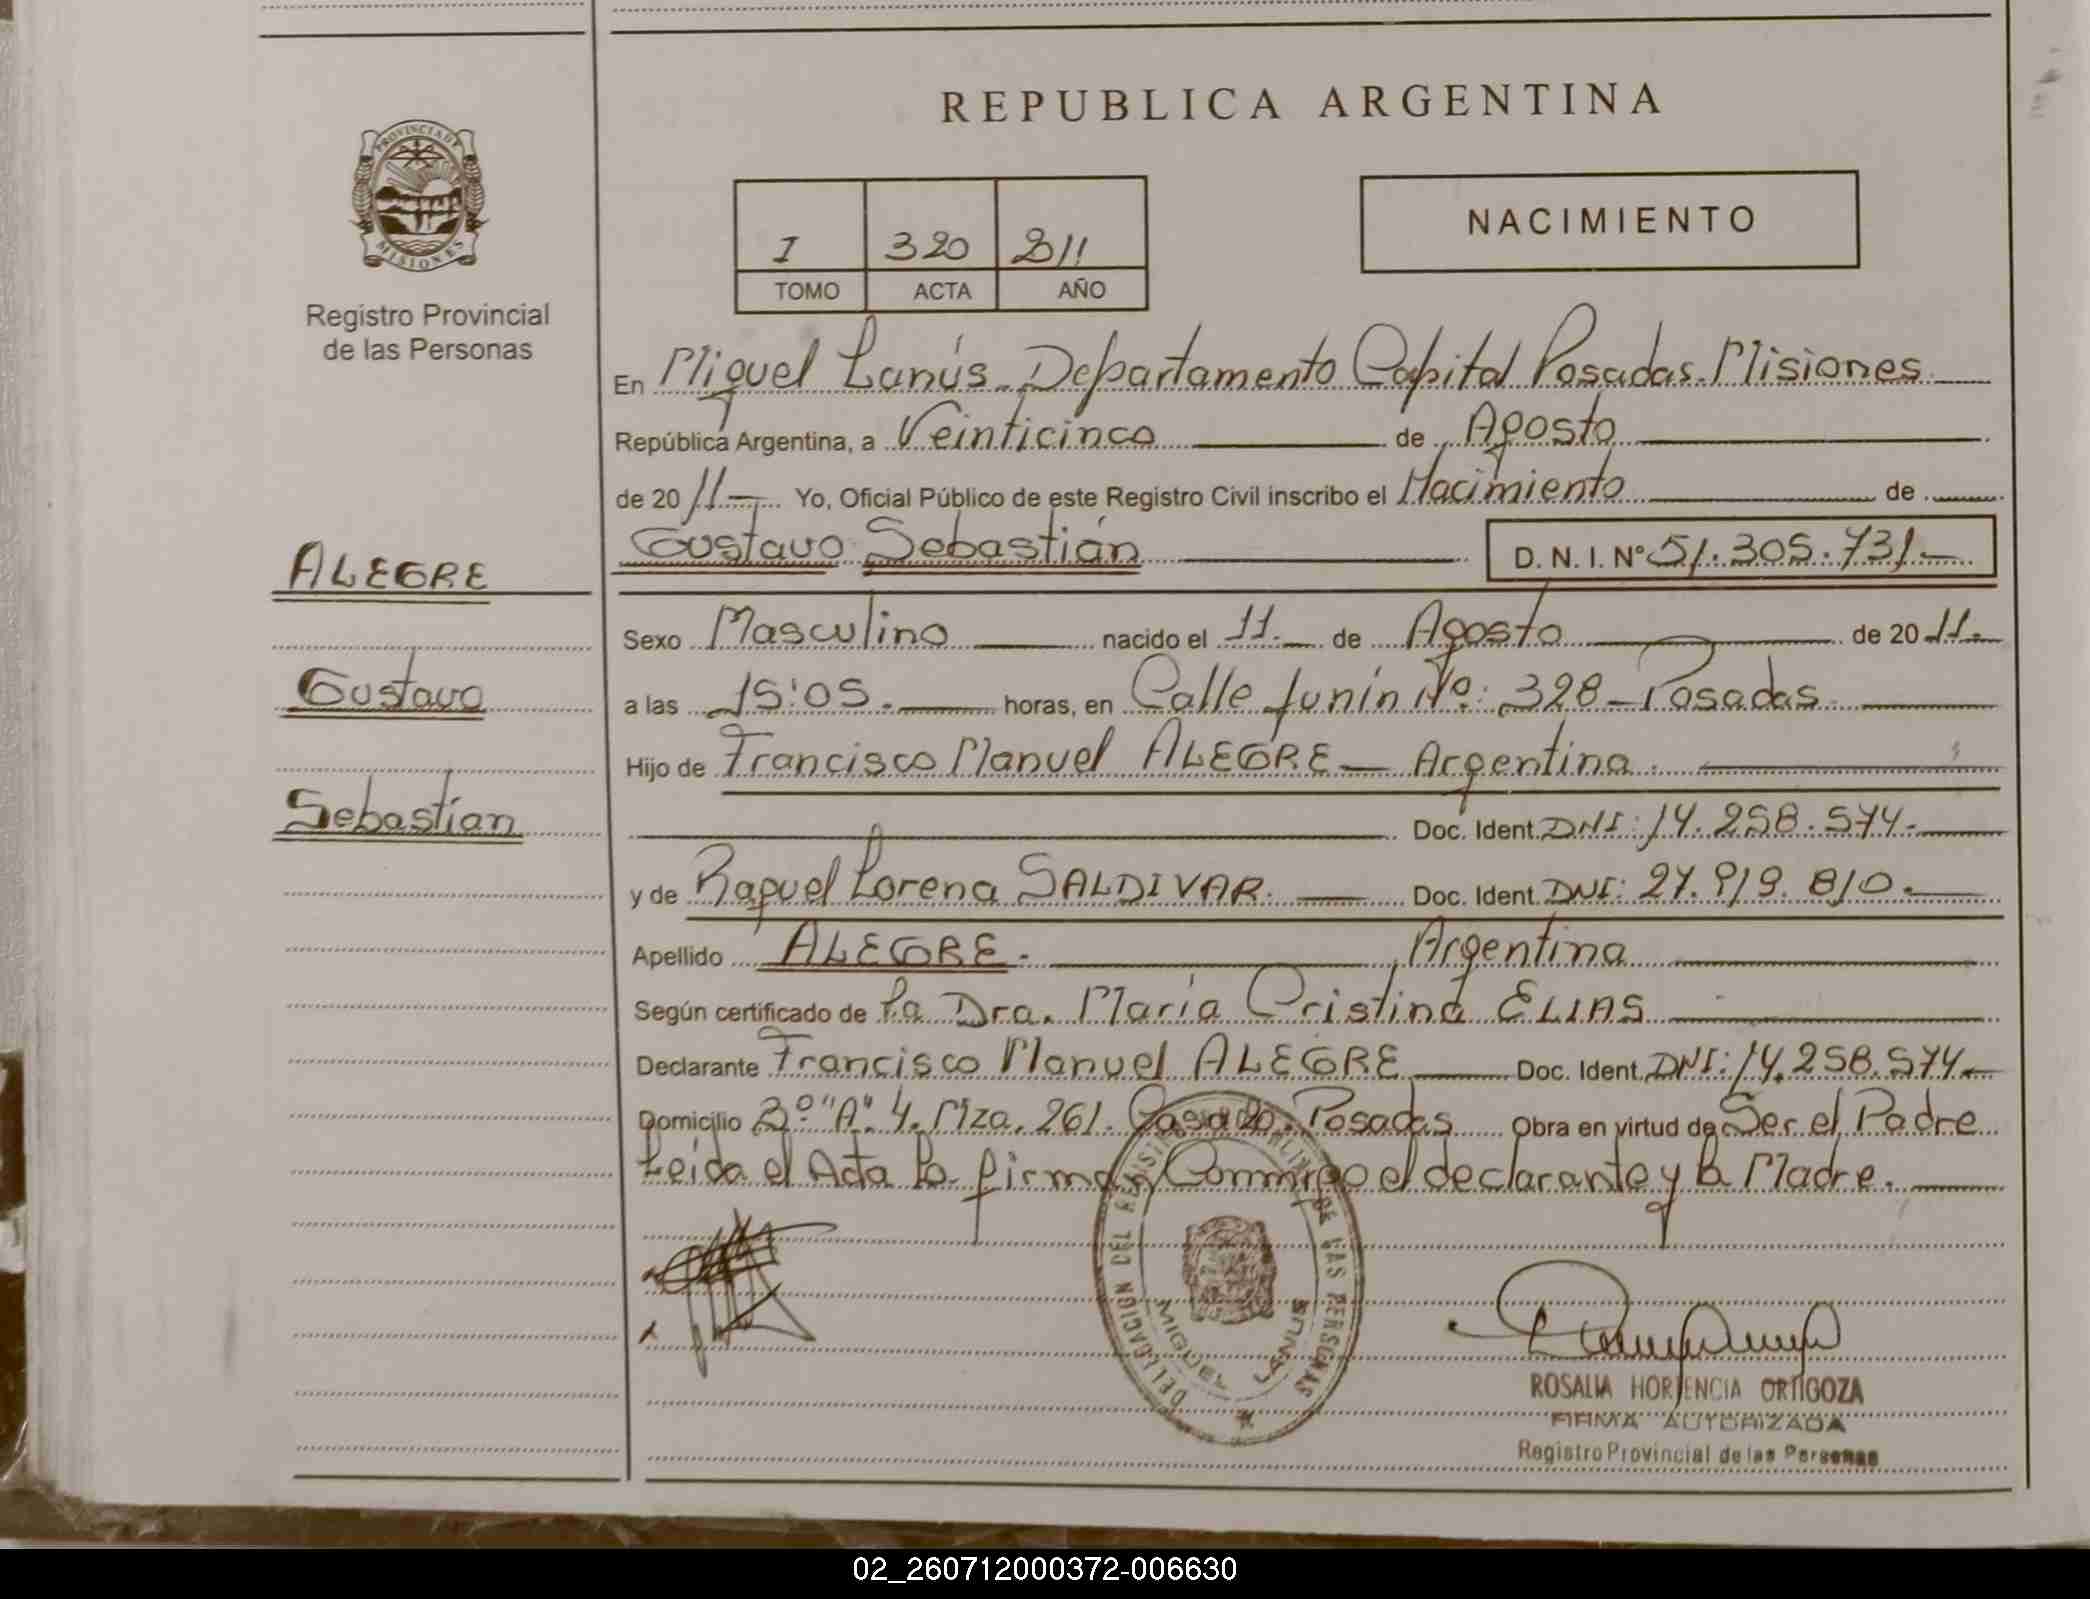 REPUBLICA ARGENTINA
PROVINCIA DE
MISIONES
Registro Provincial
de las Personas
I 320 2011
TOMO ACTA AÑO
NACIMIENTO
En Miguel Lanús Departamento Capital Posadas. Misiones
República Argentina, a Veinticinco de Agosto
de 20 11 Yo, Oficial Público de este Registro Civil inscribo el Nacimiento de
Gustavo Sebastián D. N. I. Nº 51.305.731.
ALEGRE
Sexo Masculino nacido el 11. de Agosto de 20 11.
Gustavo
a las 15:05. horas, en Calle Junín Nº: 328 - Posadas
Hijo de Francisco Manuel ALEGRE - Argentina.
Sebastian
Doc. Ident. DNI: 14.258.574.
y de Raquel Lorena SALDIVAR. Doc. Ident. DNI: 27.919.810.
Apellido ALEGRE. Argentina
Según certificado de La Dra. María Cristina ELIAS
Declarante Francisco Manuel ALEGRE Doc. Ident. DNI: 14.258.574.
Domicilio "A". 4. Mza. 261. Casa Posadas Obra en virtud de Ser el Padre
Leída el Acta la firman Conmigo el declarante y la Madre.
DELEGACION DEL REGISTRO PROVINCIAL DE LAS PERSONAS
MIGUEL LANUS
ROSALIA HORTENCIA ORTIGOZA
FIRMA AUTORIZADA
Registro Provincial de las Personas
02_260712000372-006630